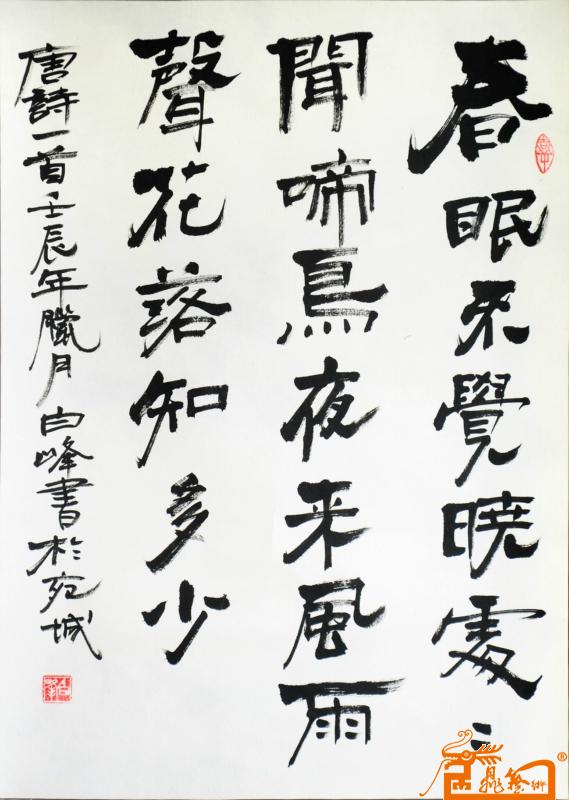 春眠不覺曉處〻
聞啼鳥夜来風雨
聲花落知多少
唐詩一首壬辰年臘月白峰書於宛城